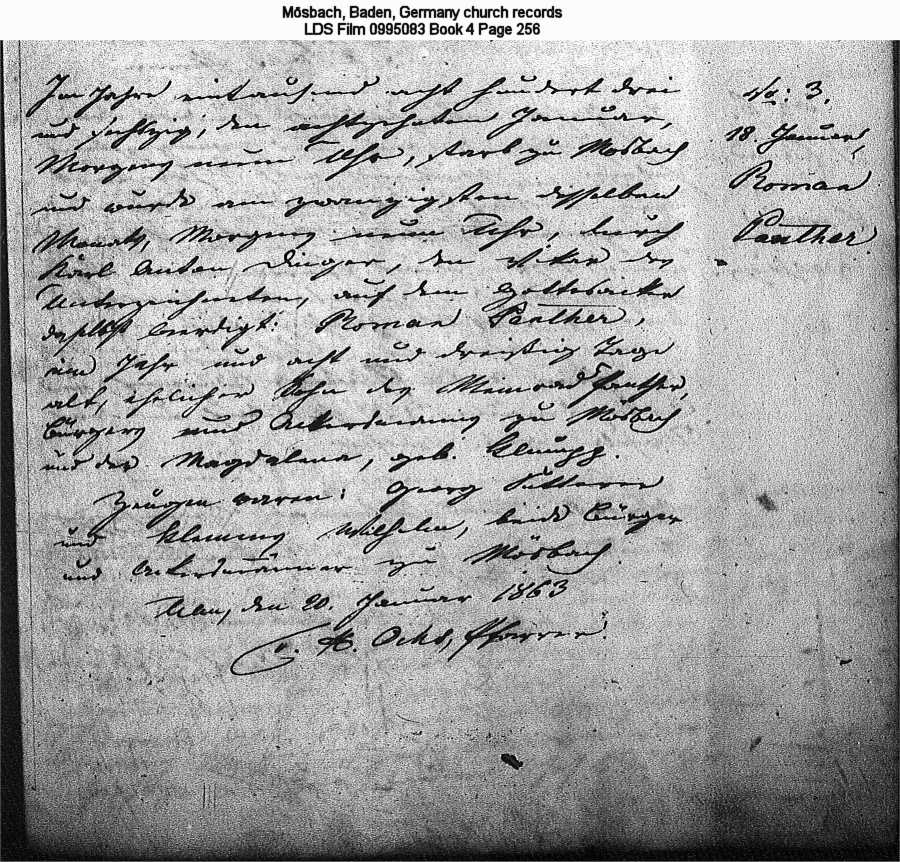 Mösbach, Baden, Germany church records
LDS Film 0995083 Book 4 Page 256
Im Jahre eintausend acht hundert drei
und sechzig, den achtzehnten Januar,
Morgens neun Uhr, starb zu Mösbach
und wurde am zwanzigsten desselben
Monats, Morgens neun Uhr, durch
Karl Anton Dinger, den Vikar des
Unterzeichneten, auf dem Gottesacker
daselbst beerdigt: Roman Panther,
ein Jahr und acht und dreißig Tage
alt, ehelicher Sohn des Meinrad Panther,
Bürgers und Ackersmanns zu Mösbach
und der Magdalena, geb.
Zeugen waren: Georg
und Klemens Wilhelm, beide Bürger
und Ackersmänner zu Mösbach.
Ulm, den 20. Januar 1863
Ochs, Pfarrer.
No: 3.
18. Januar,
Roman
Panther